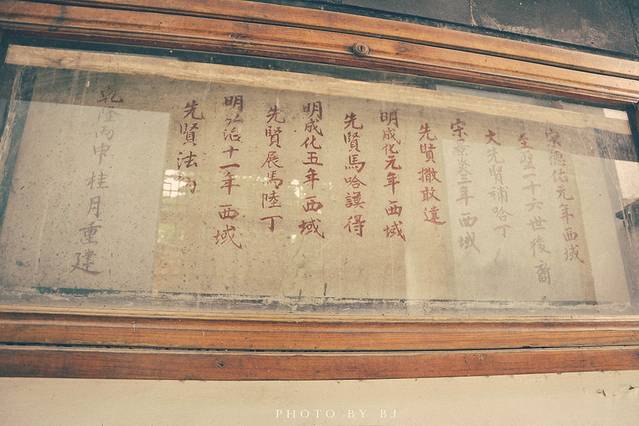 宋德佑元年西域
至聖一十六世後裔
大先賢補哈丁
宋景炎三年西域
先賢撒敢達
明成化元年西域
先賢馬哈謨得
明成化五年西域
先賢展馬陸丁
明弘治十一年西域
先賢法納
乾隆丙申桂月重建
PHOTO BY BJ